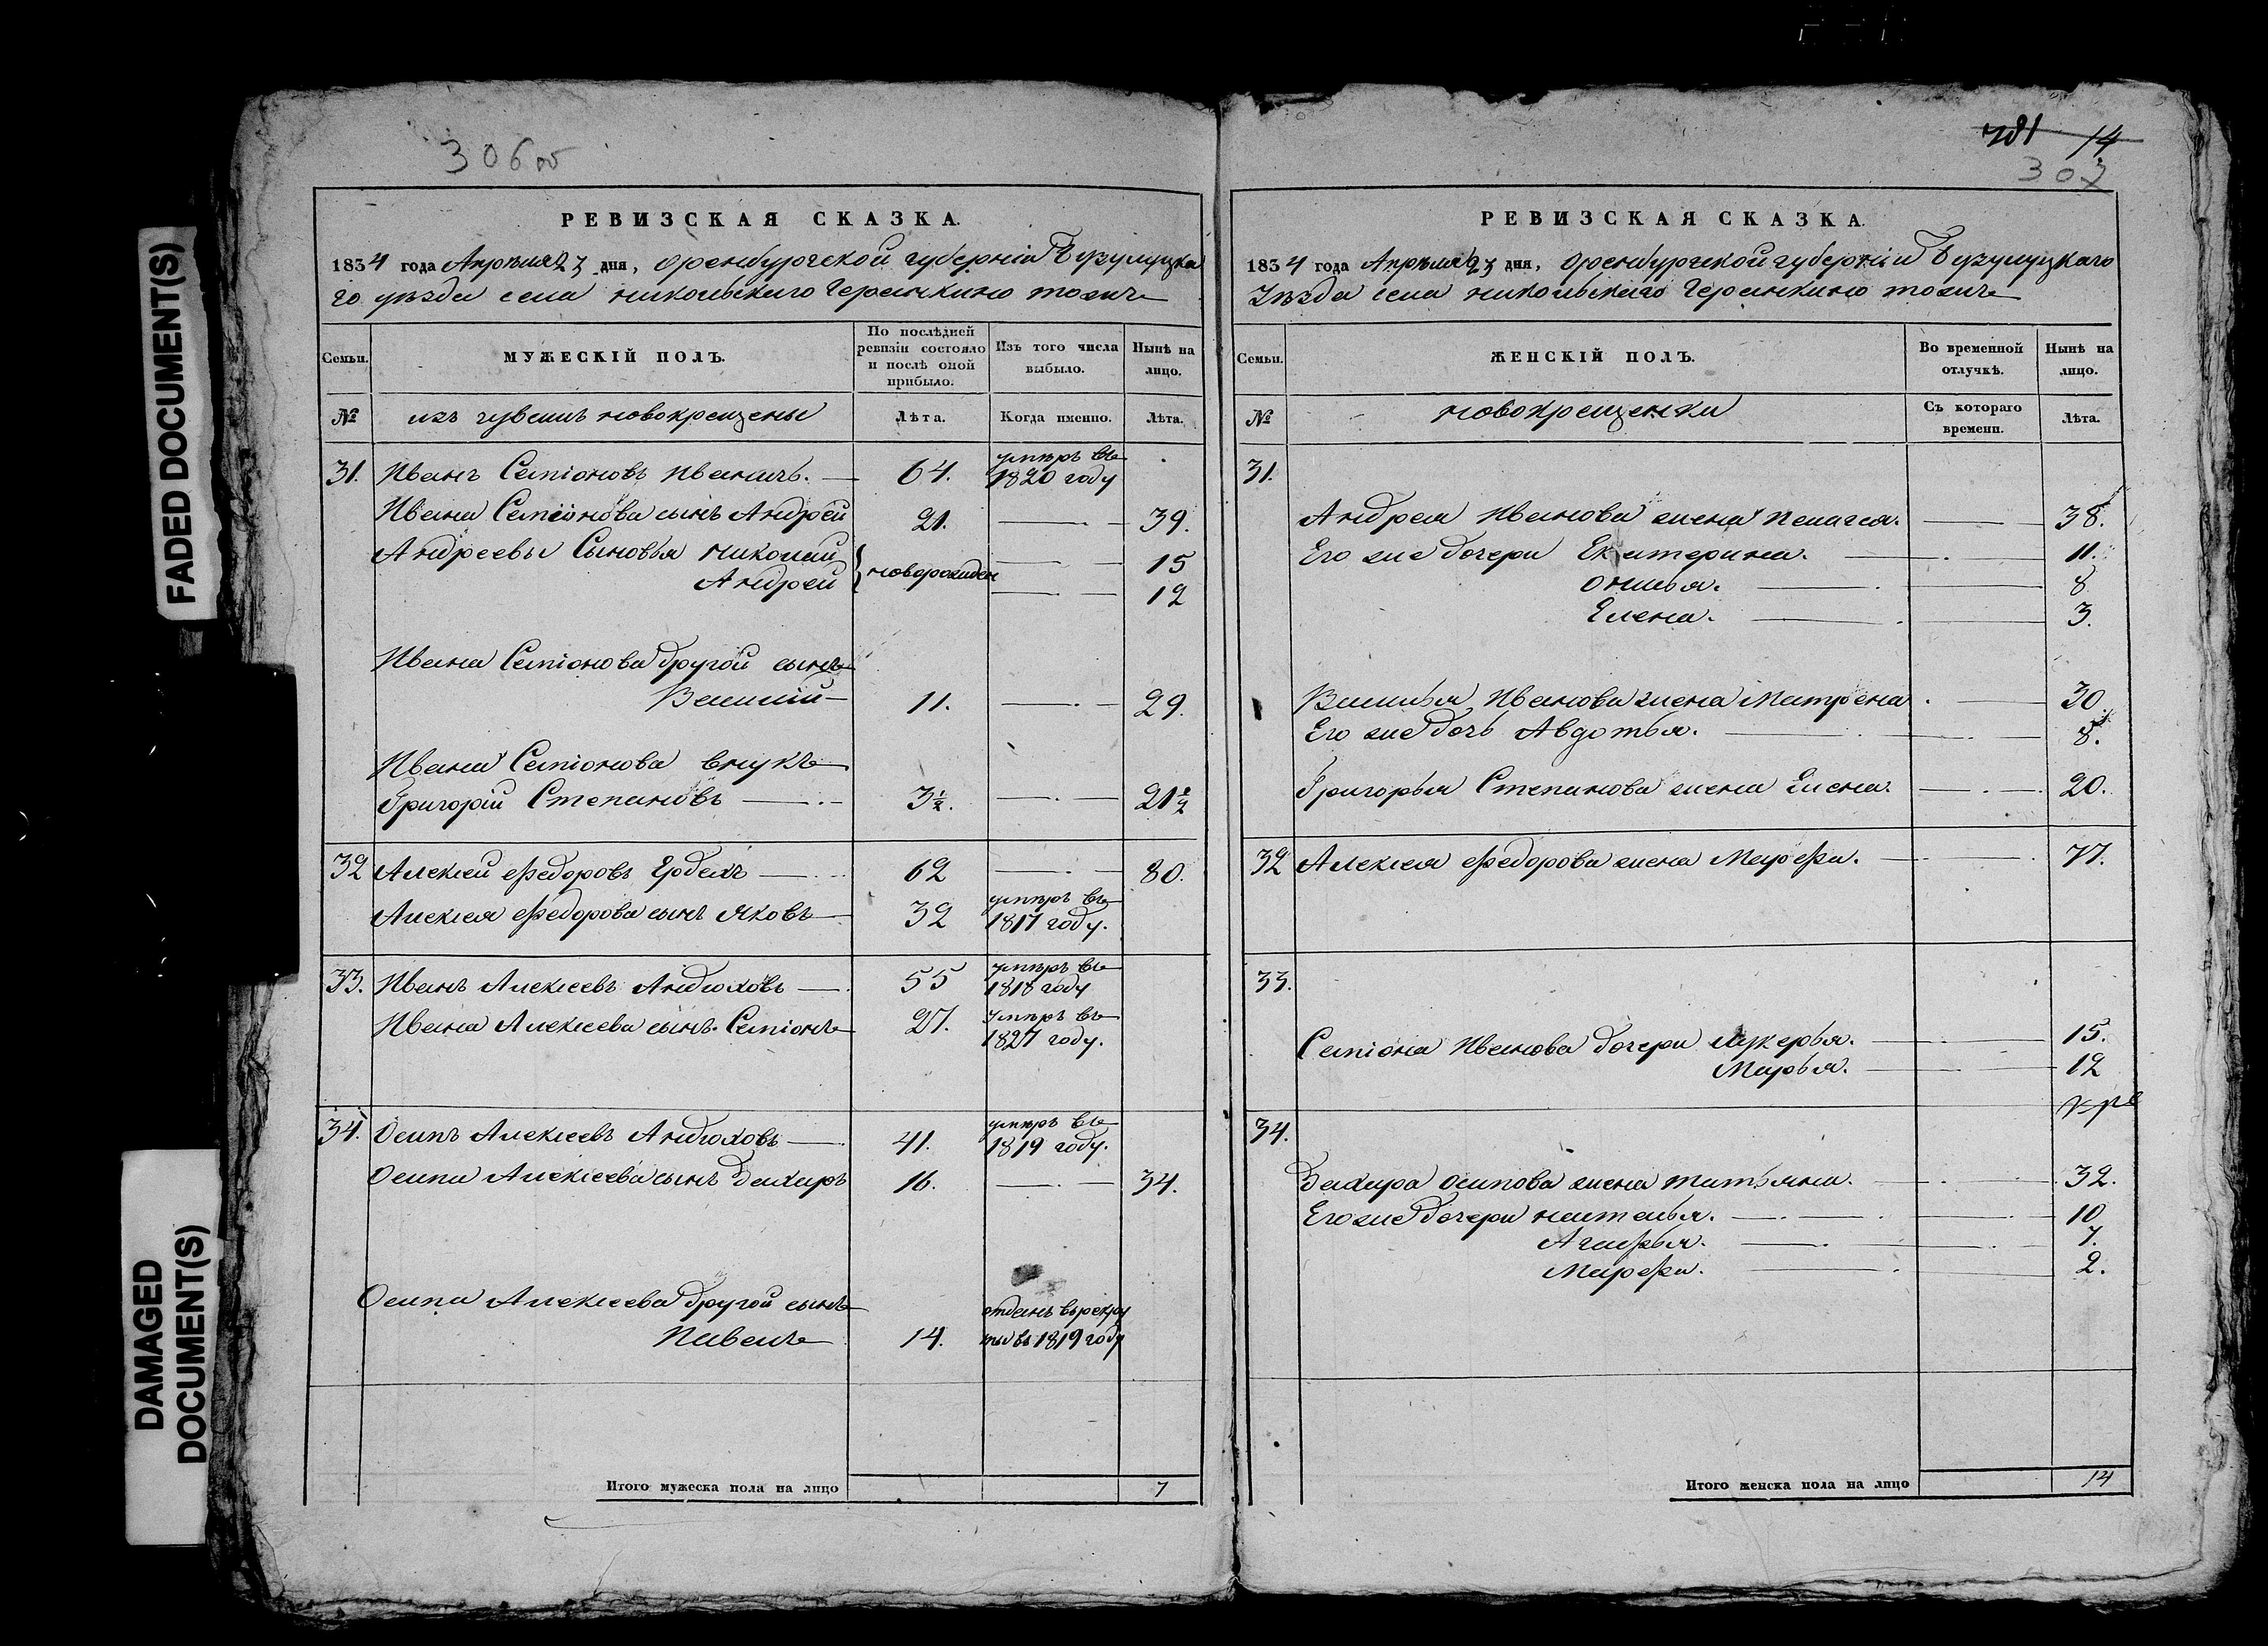 FADED DOCUMENT(S)
DAMAGED
DOCUMENT(S)
306об
РЕВИЗСКАЯ СКАЗКА.
1834 года Апрѣля 23 дня, Оренбургской губерніи Бузулуцка
го уѣзда села Никольскаго Черинкино тожъ
Семьи.
МУЖЕСКІЙ ПОЛЪ.
По послѣдней
ревизіи состояло
и послѣ оной
прибыло.
Изъ того числа
выбыло.
Нынѣ на
лицо.
№
изъ чувашъ новокрещены
Лѣта.
Когда именно.
Лѣта.
31. Иванъ Семіоновъ 64. умѣръ въ
1820 году
Ивана Семіонова сынъ Андрей 21. 39.
Андреевы Сыновья Николай 15
Андрей новорожден 12
Ивана Семіонова другой сынъ
Василій 11. 29.
Ивана Семіонова внукъ
Григорій Степановъ 3½. 21½
32 Алексей Федоровъ 62 80.
Алексея Федорова сынъ Яковъ 32 умѣръ въ
1817 году.
33. Иванъ Алексеевъ Андюховъ 55 умѣръ въ
1818 году
Ивана Алексеева сынъ Семіонъ 27. умѣръ въ
1827 году.
34. Осипъ Алексеевъ Андюховъ 41. умѣръ въ
1819 году.
Осипа Алексеева сынъ Захаръ 16. 34.
Осипа Алексеева другой сынъ отданъ въ рекру
Павелъ 14. ты въ 1819 году
Итого мужеска пола на лицо 7
781 14
307
РЕВИЗСКАЯ СКАЗКА.
1834 года Апрѣля 23 дня, Оренбургской губерніи Бузулуцкаго
Уѣзда села Никольскаго Черинкино тожъ
Семьи.
ЖЕНСКІЙ ПОЛЪ.
Во временной
отлучкѣ.
Нынѣ на
лицо.
№
новокрещенки
Съ котораго
времени.
Лѣта.
31.
Андрея Иванова жена Пелагея. 38.
Его же дочери Екатерина. 11.
8
Елена. 3.
Василья Иванова жена Матрена 30.
Его же дочь Авдотья. 8.
Григорья Степанова жена Елена. 20.
32 Алексея Федорова жена Марфа. 77.
33.
Семіона Иванова дочери Лукерья. 15.
Марья. 12
34.
Захара Осипова жена Татьяна. 32.
Его же дочери Наталья. 10
Агафья. 7.
Марфа. 2.
Итого женска пола на лицо 14